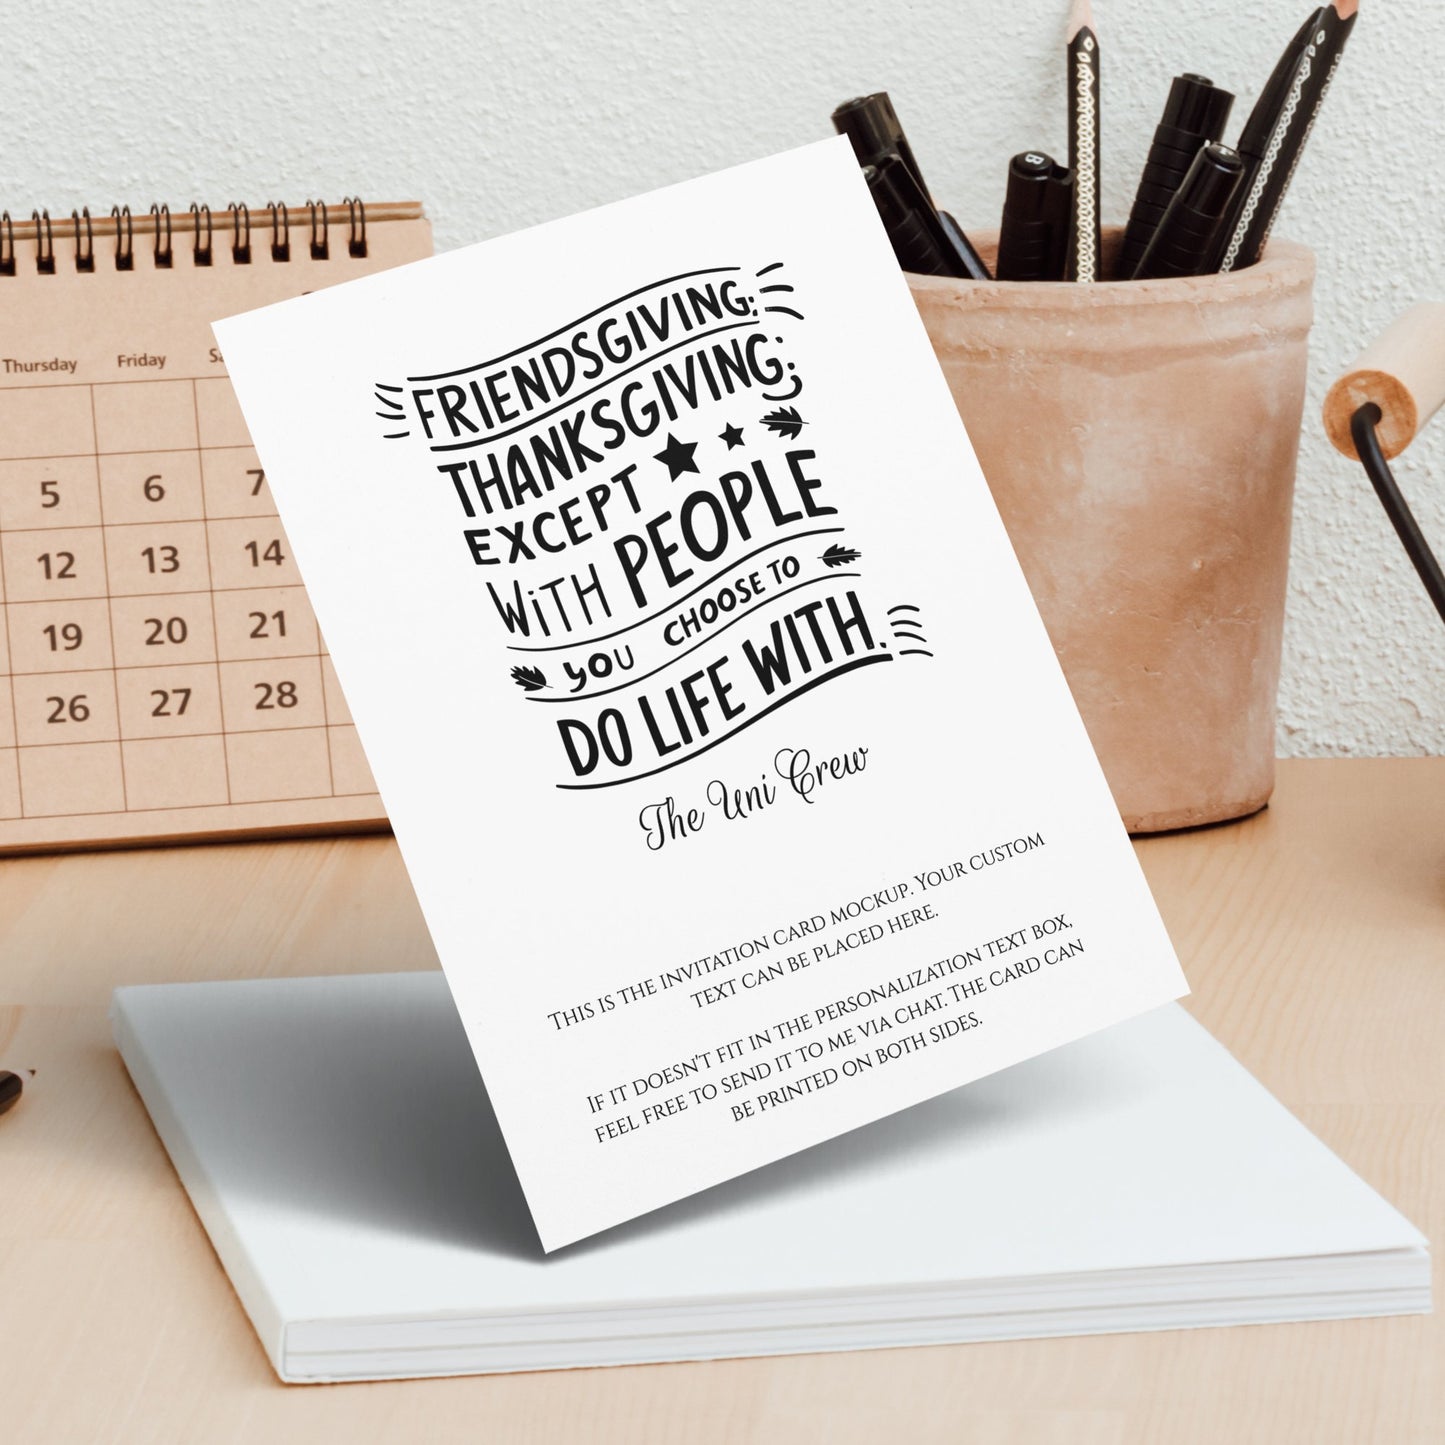 Thursday Friday Sa
5 6 7
12 13 14
19 20 21
26 27 28
B
FRIENDSGIVING:
THANKSGIVING;
EXCEPT
WiTH PEOPLE
YOU CHOOSE TO
DO LIFE WITH.
The Uni Crew
This is the invitation card mockup. Your custom
text can be placed here.
If it doesn't fit in the personalization text box,
feel free to send it to me via chat. The card can
be printed on both sides.